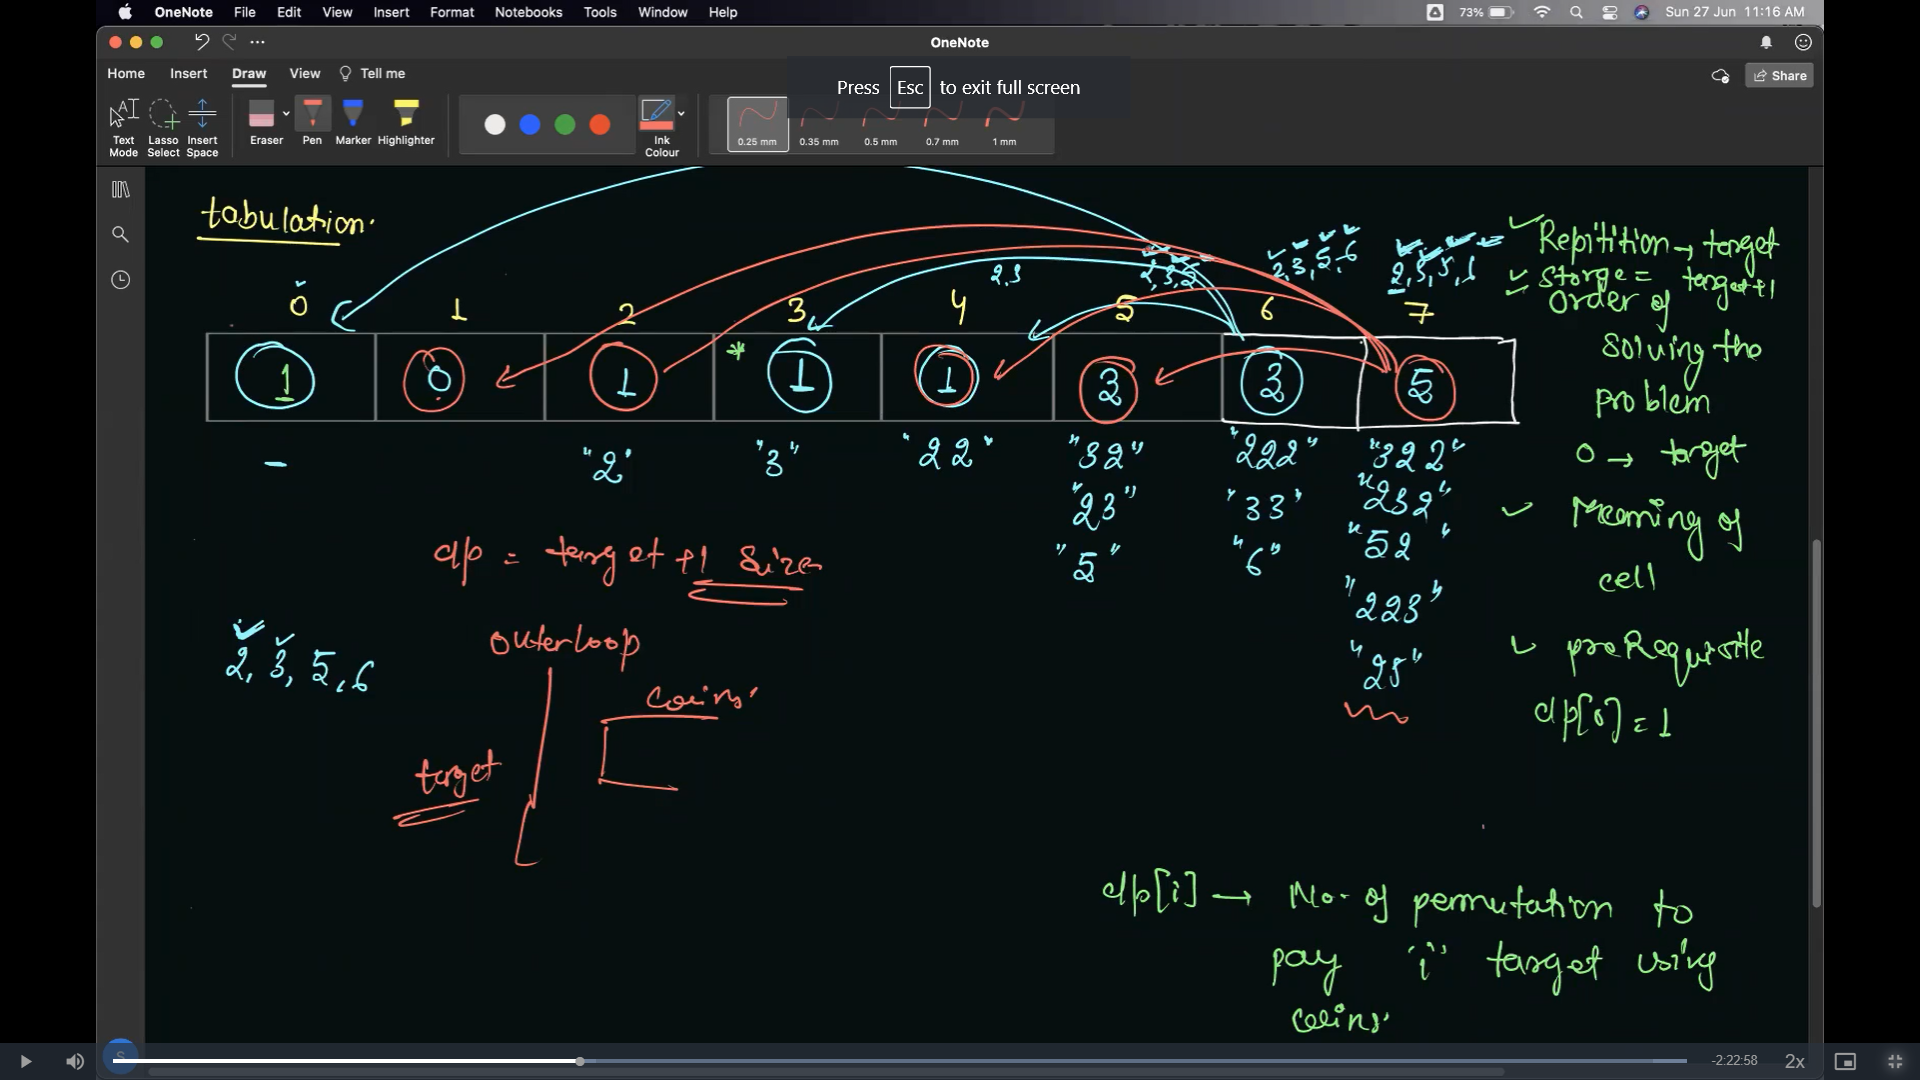 OneNote File Edit View Insert Format Notebooks Tools Window Help 73% Sun 27 Jun 11:16 AM
OneNote
Home Insert Draw View Tell me Share
Press Esc to exit full screen
Text Mode Lasso Select Insert Space Eraser Pen Marker Highlighter Ink Colour 0.25 mm 0.35 mm 0.5 mm 0.7 mm 1 mm
tabulation.
2,3 2,3,5 2,3,5,6 2,3,5,6
0 1 2 3 4 5 6 7
1 0 1 * 1 1 3 3 5
- "2" "3" "22" "32" "222" "322"
"23" "33" "232"
"5" "6" "52"
"223"
"25"
dp = target +1 Size
2, 3, 5, 6
outerloop
coins
target
Repitition → target
Storge = target+1
Order of
Solving the
problem
0 → target
Meaning of
cell
preRequisite
dp[0] = 1
dp[i] → No. of permutation to
pay "i" target using
coins.
S -2:22:58 2x